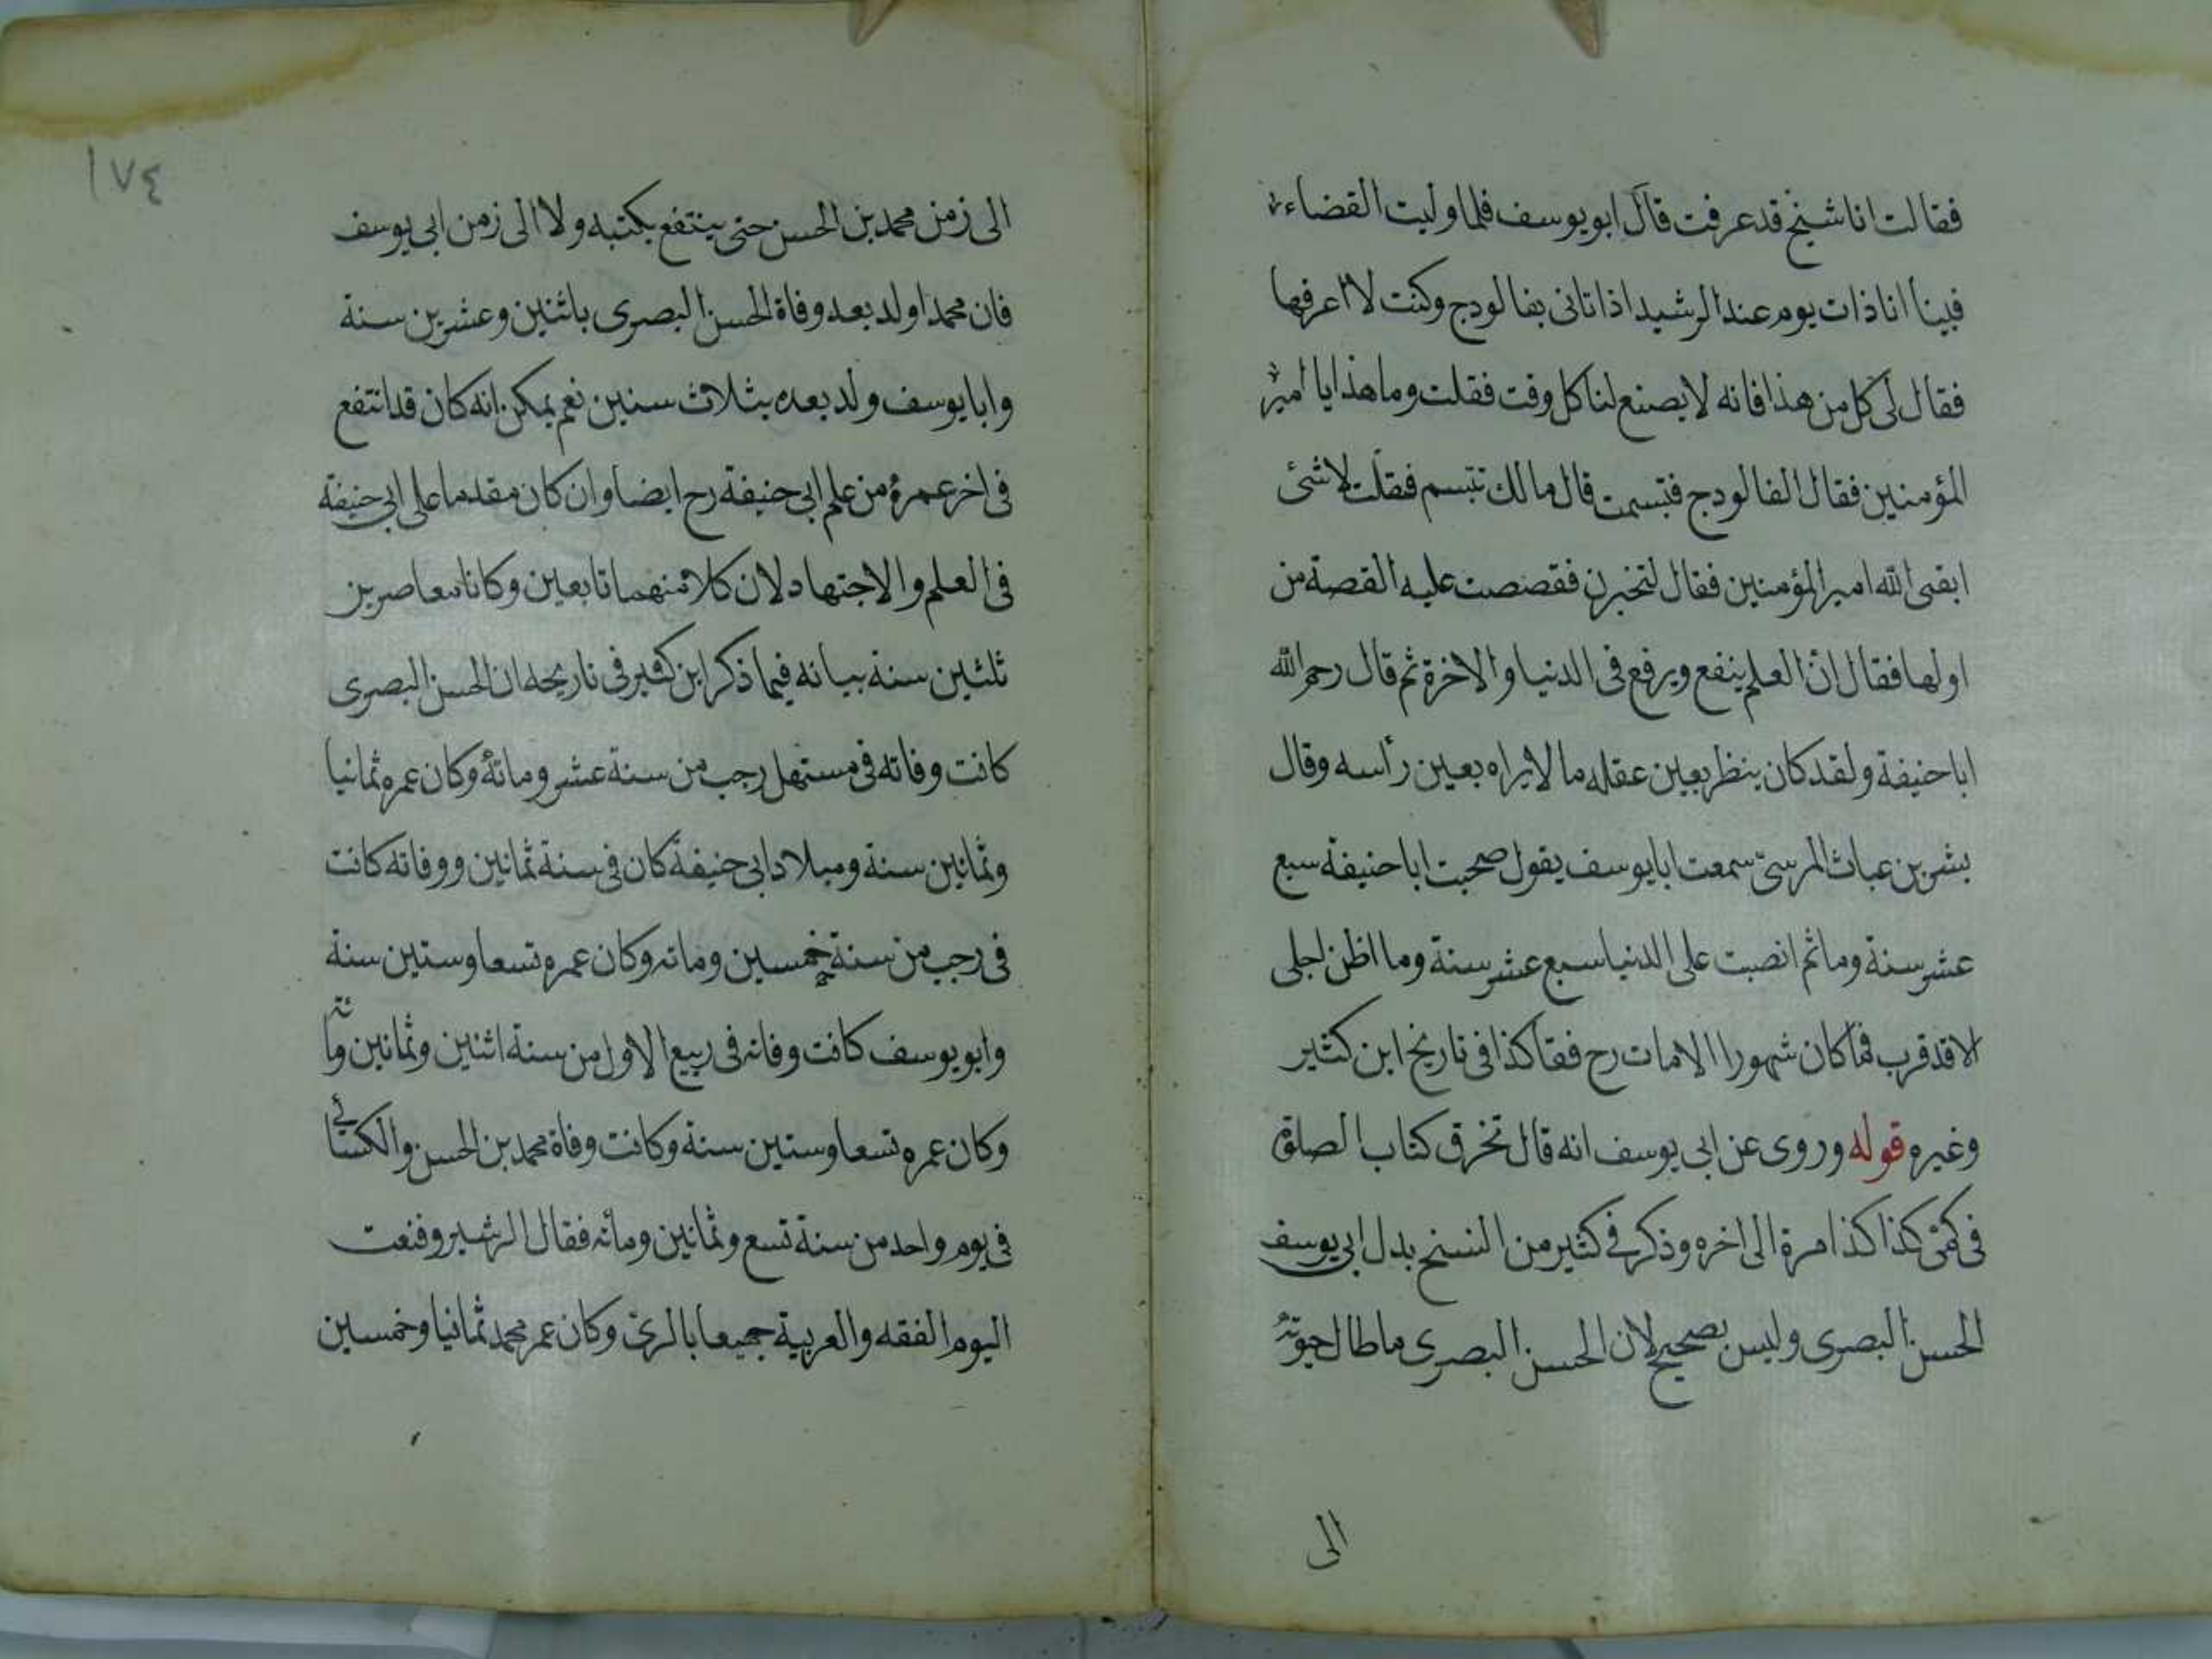 فقالت انا شيخ قد عرفت قال ابو يوسف فلما وليت القضاء
فبينا انا ذات يوم عند الرشيد اذا تانى بفالودج وكنت لا اعرفها
فقال لى كل من هذا فانه لا يصنع لنا كل وقت فقلت وما هذا يا امير
المؤمنين فقال الفالودج فتبسمت قال مالك تبتسم فقلت لا شئ
ابقى الله امير المؤمنين فقال لتخبرن فقصصت عليه القصة من
اولها فقال ان العلم ينفع ويرفع فى الدنيا والاخرة ثم قال رحم الله
ابا حنيفة ولقد كان ينظر بعين عقله ما لا يراه بعين رأسه وقال
بشر بن عياث المرسى سمعت ابا يوسف يقول صحبت ابا حنيفة سبع
عشر سنة وما ثم انصبت على الدنيا سبع عشر سنة وما اظن اجلى
الا قد قرب فما كان شهورا الا مات رح فقا كذا فى تاريخ ابن كثير
وغيره قوله وروى عن ابى يوسف انه قال تخرق كتاب الصلوة
فى كمى كذا كذا مرة الى اخره وذكر فى كثير من النسخ بدل ابى يوسف
الحسن البصرى وليس بصحيح لان الحسن البصرى ما طال حيوته
الى
١٧٤
الى زمن محمد بن الحسن حتى ينتفع بكتبه ولا الى زمن ابى يوسف
فان محمدا ولد بعد وفاة الحسن البصرى باثنين وعشرين سنة
وابا يوسف ولد بعده بثلاث سنين نعم يمكن انه كان قد انتفع
فى اخر عمره من علم ابى حنيفة رح ايضا وان كان مقدما على ابى حنيفة
فى العلم والاجتهاد لان كلا منهما تابعين وكانا معاصرين
ثلثين سنة بيانه فيما ذكر ابن كثير فى تاريخه ان الحسن البصرى
كانت وفاته فى مستهل رجب من سنة عشر ومائة وكان عمره ثمانيا
وثمانين سنة وميلاد ابى حنيفة كان فى سنة ثمانين ووفاته كانت
فى رجب من سنة خمسين ومائه وكان عمره تسعا وستين سنة
وابو يوسف كانت وفاته فى ربيع الاول من سنة اثنين وثمانين ومائة
وكان عمره تسعا وستين سنة وكانت وفاة محمد بن الحسن والكسائى
فى يوم واحد من سنة تسع وثمانين ومائه فقال الرشيد وفنعت
اليوم الفقه والعربية جميعا بالرى وكان عمر محمد ثمانيا وخمسين